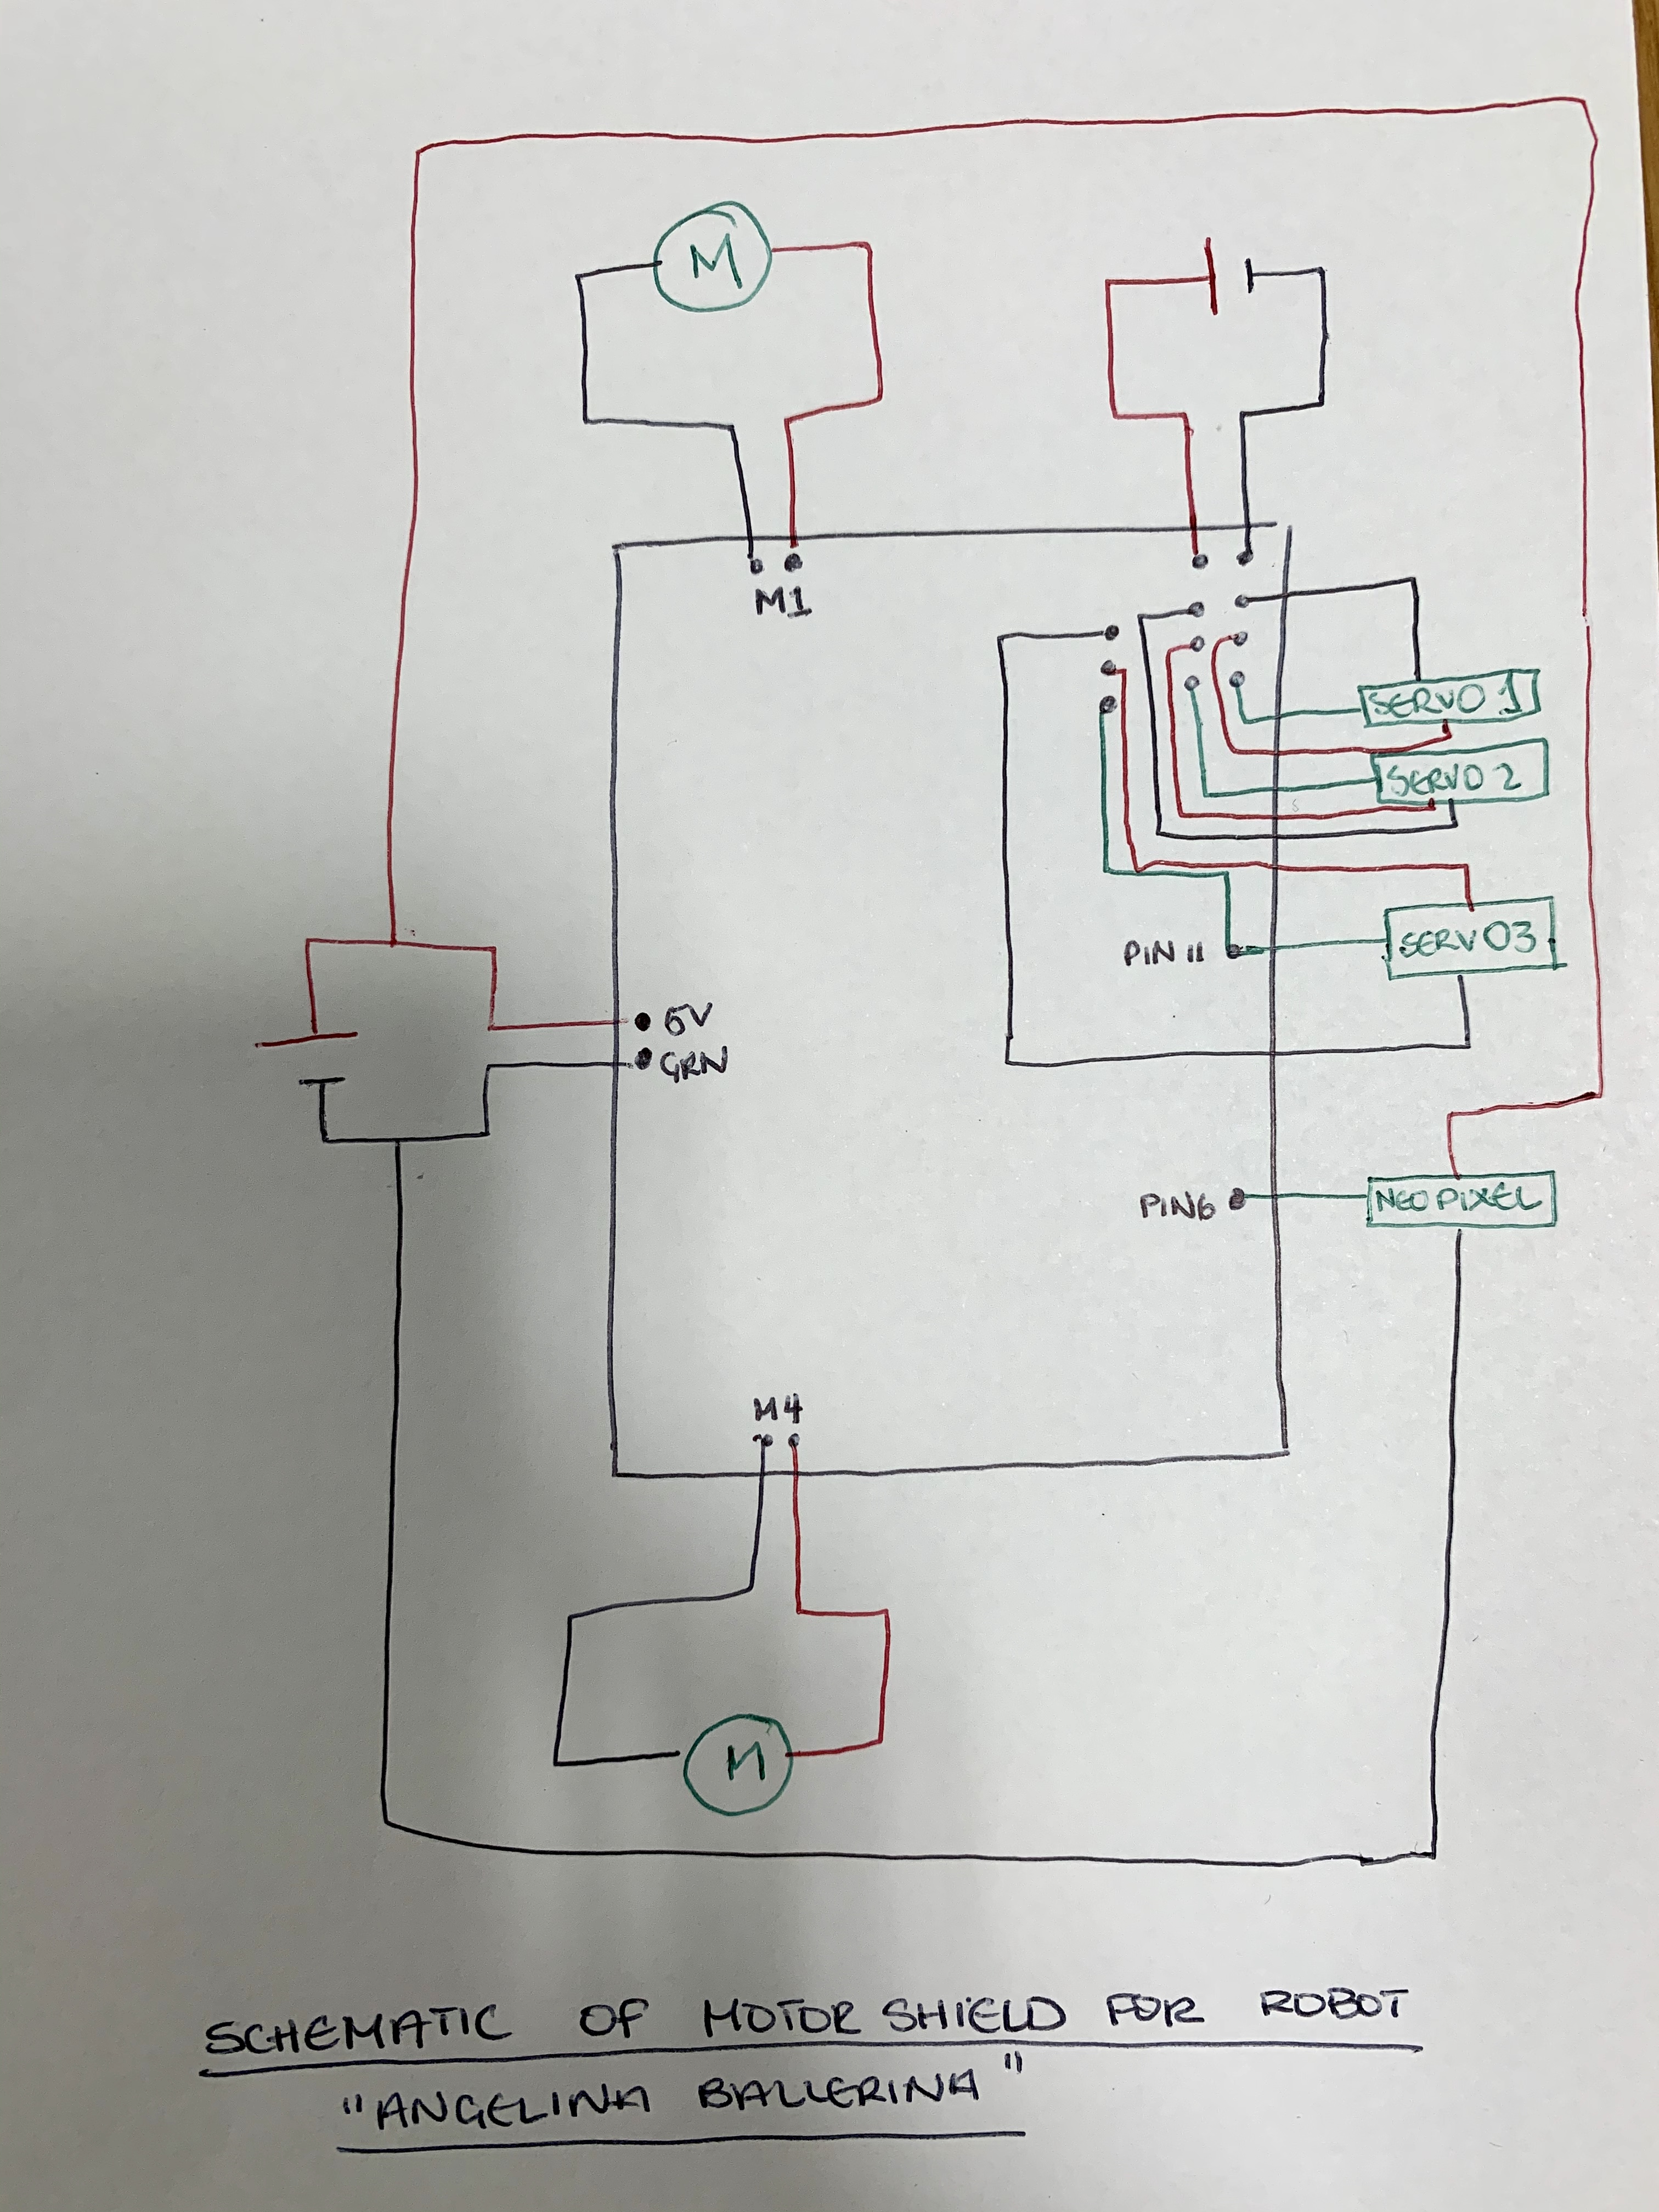 M
M1
SERVO 1
SERVO 2
PIN 11
SERVO3
5V
GRN
PIN6
NEOPIXEL
M4
M
SCHEMATIC OF MOTOR SHIELD FOR ROBOT
"ANGELINA BALLERINA"